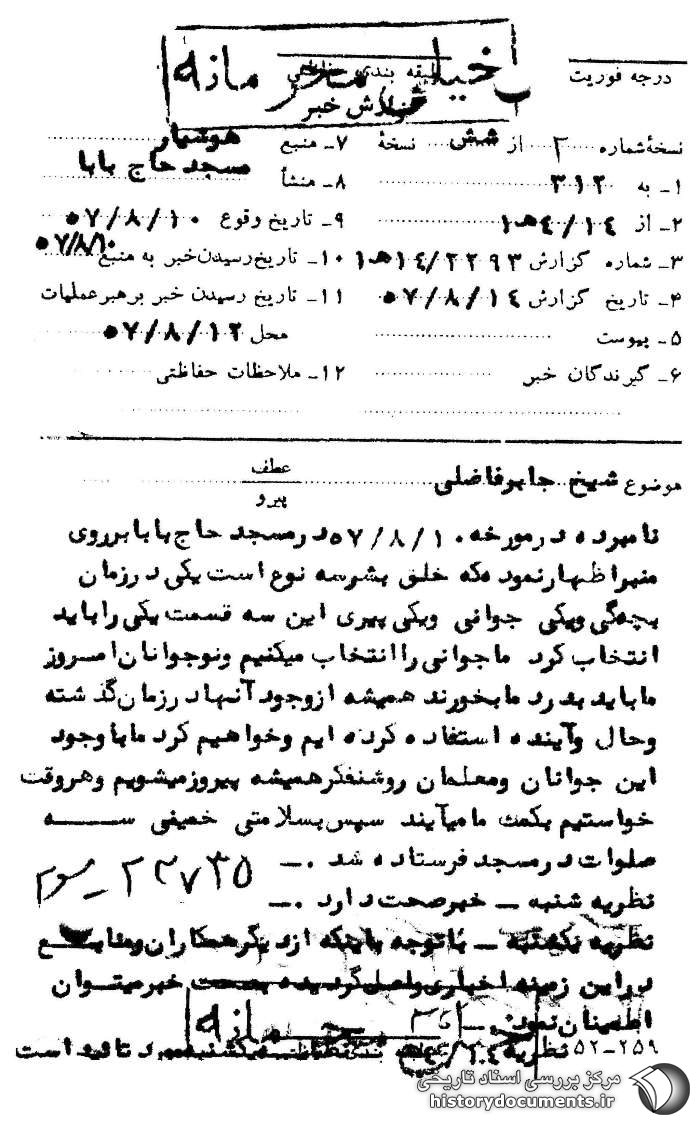 خیلی محرمانه
درجه فوریت
طبقه بندی حفاظتی
گزارش خبر
نسخهٔ شماره ۲ از شش نسخهٔ
۱ـ به ۳۱۲
۲ـ از ۱۴/۴ هـ ۱
۳ـ شماره گزارش ۱۴/۲۲۹۳ هـ ۱
۴ـ تاریخ گزارش ۵۷/۸/۱۴
۵ـ پیوست
۶ـ گیرندگان خبر
۷ـ منبع هوشیار
۸ـ منشأ مسجد حاج بابا
۹ـ تاریخ وقوع ۵۷/۸/۱۰
۱۰ـ تاریخ رسیدن خبر به منبع ۵۷/۸/۱۰
۱۱ـ تاریخ رسیدن خبر برهبر عملیات
محل ۵۷/۸/۱۲
۱۲ـ ملاحظات حفاظتی
موضوع شیخ جابر فاضلی
عطف
پیرو
نامبرده در مورخه ۵۷/۸/۱۰ در مسجد حاج بابا بر روی
منبر اظهار نموده که خلق بشر سه نوع است یکی در زمان
بچه‌گی و یکی جوانی و یکی پیری این سه قسمت یکی را باید
انتخاب کرد ما جوانی را انتخاب میکنیم و نوجوانان امروز
ما باید بدرد ما بخورند همیشه از وجود آنها در زمان گذشته
و حال و آینده استفاده کرده ایم و خواهیم کرد ما با وجود
این جوانان و معلمان روشنفکر همیشه پیروز میشویم و هروقت
خواستیم بکمک ما میآیند سپس بسلامتی خمینی سه
صلوات در مسجد فرستاده شد .ـ
۲۲۷۳۵
نظریه شنبه ـ خبر صحت دارد .ـ
نظریه یکشنبه ـ با توجه باینکه از دیگر همکاران و منابع
در این زمینه اخباری واصل گردیده بصحت خبر میتوان
اطمینان نمود .ـ
۵۲-۲۵۹
نظریه ۱۴/۴ هـ نظریه یکشنبه مورد تائید است
محرمانه
مرکز بررسی اسناد تاریخی
historydocuments.ir